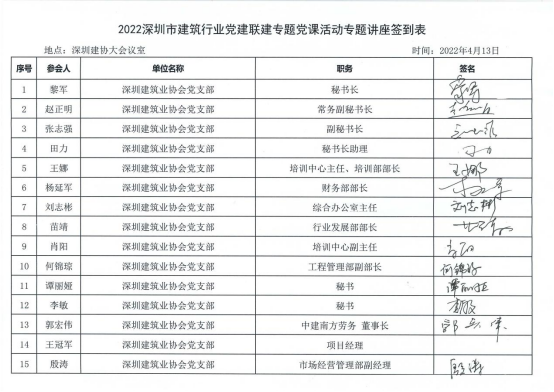 2022深圳市建筑行业党建联建专题党课活动专题讲座签到表
地点：深圳建协大会议室 时间：2022年4月13日
序号 参会人 单位名称 职务 签名
1 黎军 深圳建筑业协会党支部 秘书长
2 赵正明 深圳建筑业协会党支部 常务副秘书长
3 张志强 深圳建筑业协会党支部 副秘书长
4 田力 深圳建筑业协会党支部 秘书长助理
5 王娜 深圳建筑业协会党支部 培训中心主任、培训部部长 王娜
6 杨延军 深圳建筑业协会党支部 财务部部长
7 刘志彬 深圳建筑业协会党支部 综合办公室主任 刘志彬
8 苗靖 深圳建筑业协会党支部 行业发展部部长
9 肖阳 深圳建筑业协会党支部 培训中心副主任
10 何锦琼 深圳建筑业协会党支部 工程管理部副部长
11 谭丽娅 深圳建筑业协会党支部 秘书
12 李敏 深圳建筑业协会党支部 秘书
13 郭宏伟 深圳建筑业协会党支部 中建南方劳务 董事长
14 王冠军 深圳建筑业协会党支部 项目经理
15 殷涛 深圳建筑业协会党支部 市场经营管理部副经理 殷涛